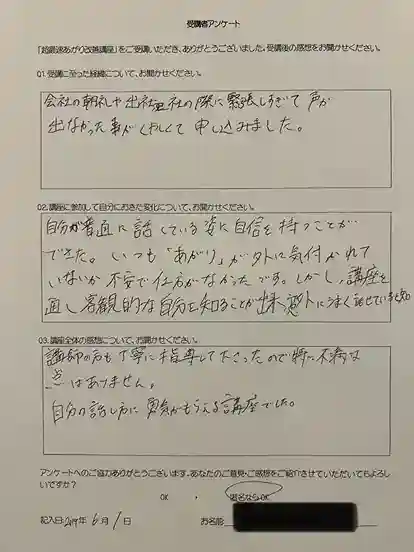 受講者アンケート
「超最速あがり改善講座」をご受講いただき、ありがとうございました。受講後の感想をお聞かせください。
Q1.受講に至った経緯について、お聞かせください。
会社の朝礼や出社 社の際に緊張しすぎて声が
出なかった事がくやしくて申し込みました。
Q2.講座に参加して自分におきた変化について、お聞かせください。
自分が普通に話している姿に自信を持つことが
できた。いつも「あがり」が外に気付かれて
いないか不安で仕方がなかったです。しかし、講座を
通し客観的な自分を知ることが出来、意外にうまく話せていると
Q3.講座全体の感想について、お聞かせください。
講師の方も丁寧に指導して下さったので特に不満な
点はありません。
自分の話し方に勇気がもらえる講座でした。
アンケートへのご協力ありがとうございます。あなたのご意見・ご感想をご紹介させていただいてもよろし
いですか?
OK ・ 匿名ならOK
記入日:2019年 6月 1日 お名前: